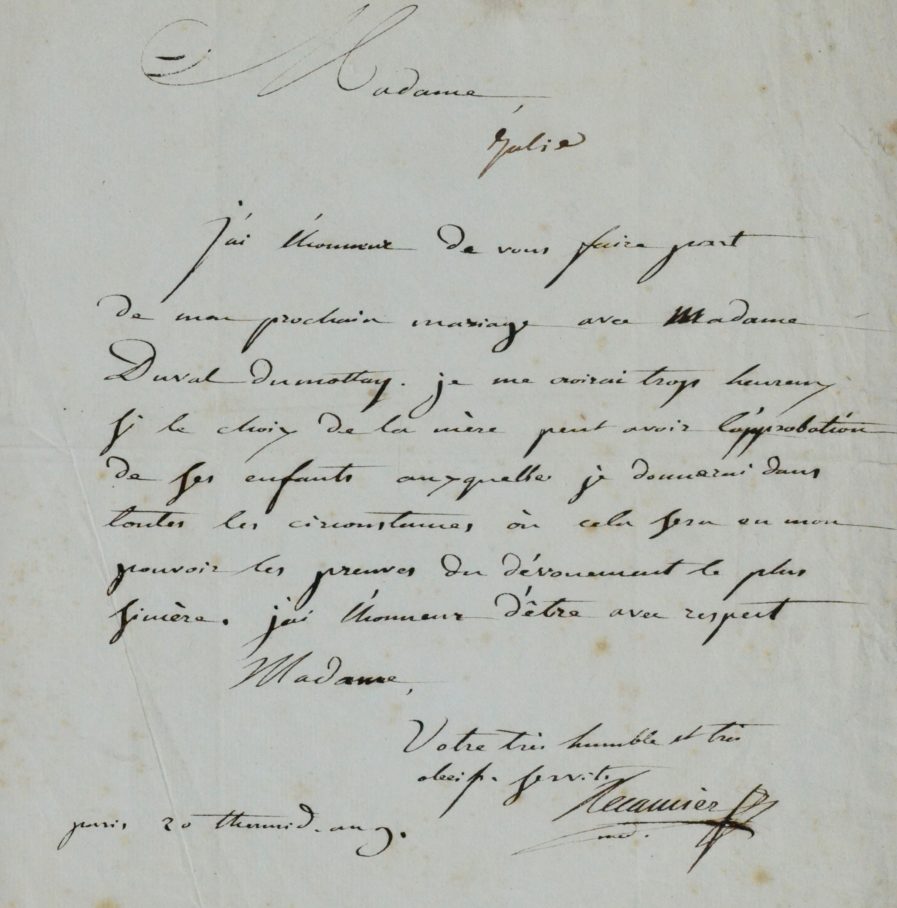 Madame,
Julie
j'ai l'honneur de vous faire part
de mon prochain mariage avec Madame
Duval dumottay. je me croirai trop heureux
si le choix de la mère peut avoir l'approbation
de ses enfants auxquelles je donnerai dans
toutes les circonstances où cela sera en mon
pouvoir les preuves du dévouement le plus
sincère. j'ai l'honneur d'être avec respect
Madame,
Votre très humble et très
obeiss. servit.
Recamier
md.
paris 20 thermid. an 9.